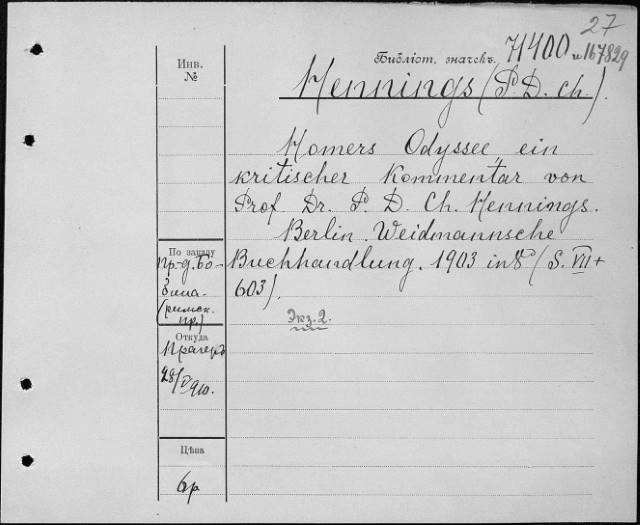 27
Библіот. значекъ. 71400 и 167829
Инв.
№
Hennings (P. D. Ch.).
Homers Odyssee, ein
kritischer Kommentar von
Prof. Dr. P. D. Ch. Hennings.
Berlin. Weidmannsche
Buchhandlung. 1903 in 8° (S. VII +
603).
Экз. 2.
По заказу
пр-д. Бо-
зина
(римск.
пр.)
Откуда
Прагеръ
28/V 910.
Цѣна
6р